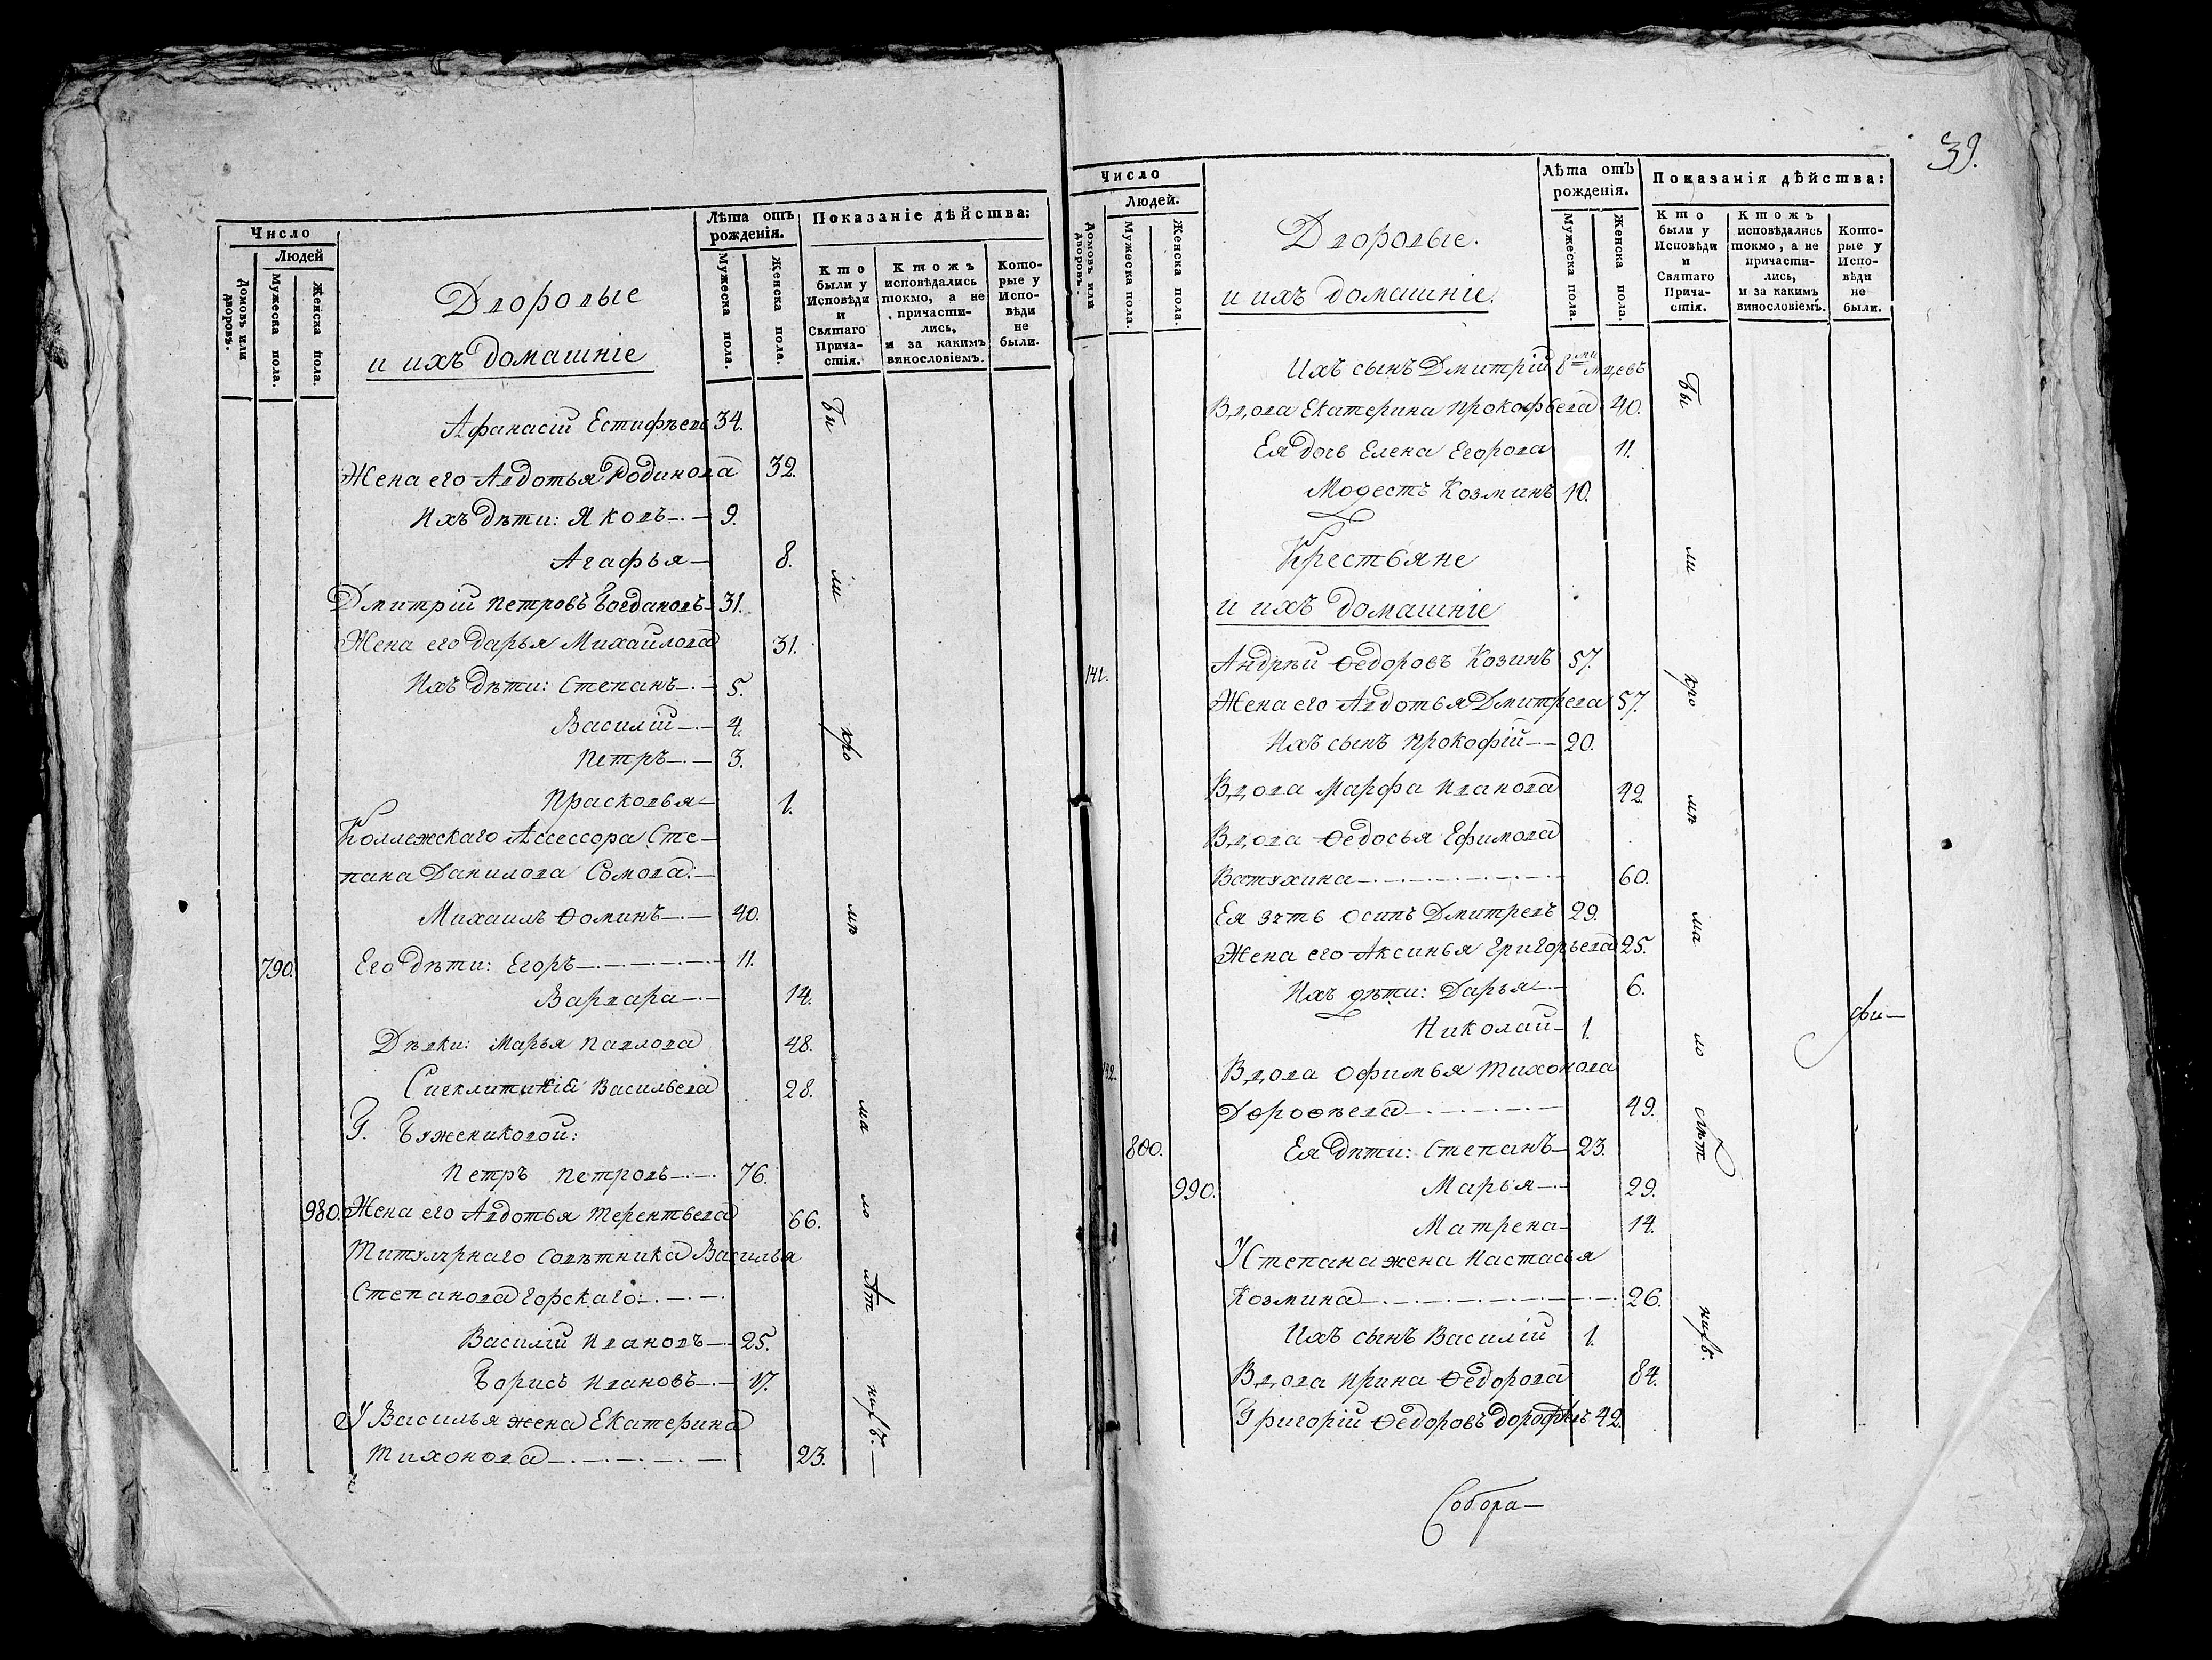 Число
Людей
Домовъ или дворовъ.
Мужеска пола.
Женска пола.
Дворовые
и ихъ домашніе
Лѣта отъ рожденія.
Мужеска пола.
Женска пола.
Показаніе дѣйства:
Кто были у Исповѣди и Святаго Прича-стія.
Ктожъ исповѣдались токмо, а не причасти-лись, и за какимъ винословіемъ.
Кото-рые у Испо-вѣди не были.
Афанасій Естифѣевъ 34.
Жена его Авдотья Родинова 32.
Ихъ дѣти: Яковъ 9.
Агафья 8.
Дмитрій Петровъ Богдановъ 31.
Жена его Дарья Михаилова 31.
Ихъ дѣти: Степанъ 5.
Василій 4.
Петръ 3.
Прасковья 1.
Коллежскаго Ассессора Сте-
пана Данилова Сомова:
Михаилъ Ѳоминъ 40.
790. Его дѣти: Егоръ 11.
Варвара 14.
Дѣвки: Марья Павлова 48.
Сигклитикіа Васильева 28.
Г. Бужениковой:
Петръ Петровъ 76.
980. Жена его Авдотья Терентьева 66.
Титулярнаго Совѣтника Василья
Степанова Горскаго:
Василій Ивановъ 25.
Борисъ Ивановъ 17.
У Василья жена Екатерина
Тихонова 23.
Бы
ли
про
мѣ
ма
ло
лѣт
нихъ.
39.
Число
Людей.
Домовъ или дворовъ.
Мужеска пола.
Женска пола.
Дворовые.
и ихъ домашніе.
Лѣта отъ рожденія.
Мужеска пола.
Женска пола.
Показанія дѣйства:
Кто были у Исповѣди и Святаго Прича-стія.
Ктожъ исповѣдались токмо, а не причасти-лись, и за какимъ винословіемъ.
Кото-рые у Испо-вѣди не были.
Ихъ сынъ Дмитрій 8ми мцевъ
Вдова Екатерина Прокофьева 40.
Ея дочь Елена Егорова 11.
Модестъ Козминъ 10.
Крестьяне
и ихъ домашніе
141. Андрѣй Ѳедоровъ Козинъ 57.
Жена его Авдотья Дмитрева 57.
Ихъ сынъ Прокофій 20.
Вдова Марфа Иванова 42.
Вдова Ѳедосья Ефимова
Ватухина 60.
Ея зять Осипъ Дмитревъ 29.
Жена его Аксинья Григорьева 25.
Ихъ дѣти: Дарья 6.
Николай 1.
142. Вдова Офимья Тихонова
Дороѳѣева 49.
800. Ея дѣти: Степанъ 23.
990. Марья 29.
Матрена 14.
У Степана жена Настасья
Козмина 26.
Ихъ сынъ Василій 1.
Вдова Ирина Ѳедорова 84.
Григорій Ѳедоровъ Дорофѣевъ 42.
Бы
ли
кро
мѣ
ма
ло
лѣт
нихъ.
фи
Собора